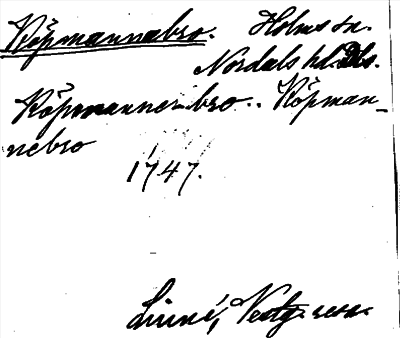 Köpmannebro. Holms sn.
Nordals hd. Dls.
Köpmanner-bro.. Köpman-
nebro
1747.
Linné, Vestg. resa